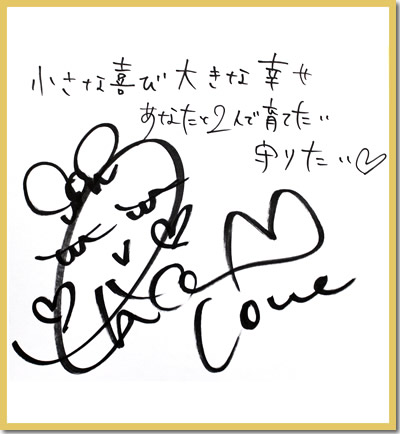 小さな喜び 大きな幸せ
あなたと2人で育てたい
守りたい♡
Love